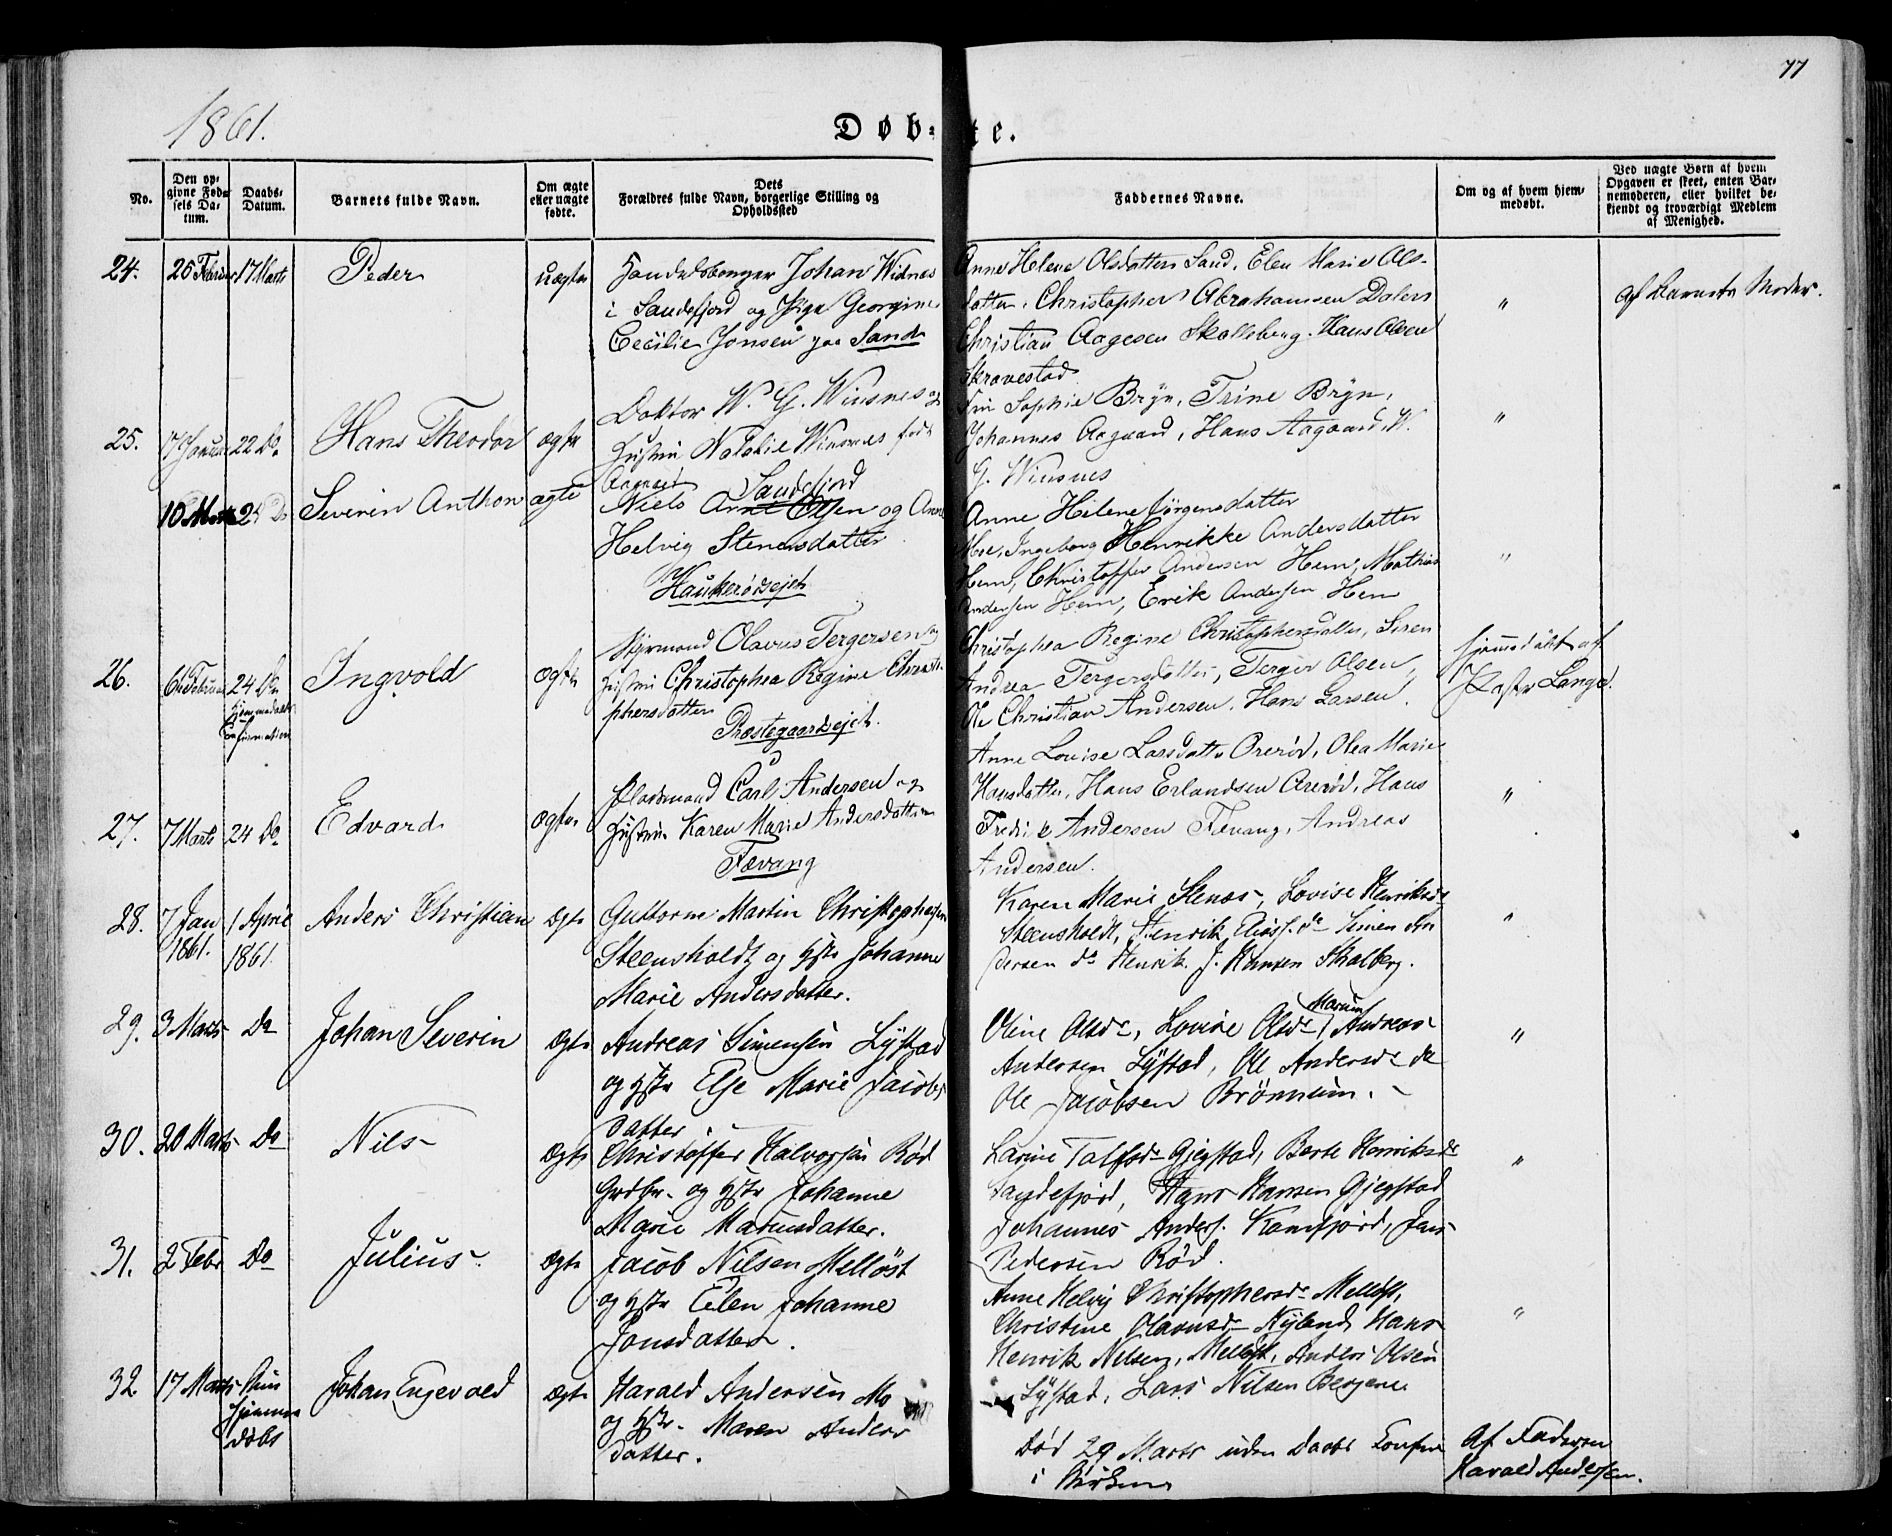 77
1861.
Døb- te.
No.
Den op-
givne Fød-
sels Da-
tum.
Daabs-
Datum.
Barnets fulde Navn.
Om ægte
eller uægte
fødte.
Dets
Forældres fulde Navn, borgerlige Stilling og
Opholdssted
Faddernes Navne.
Om og af hvem hjem-
medøbt.
Ved uægte Børn af hvem
Opgaven er skeet, enten Bar-
nemoderen, eller hvilket be-
kjendt og troværdigt Medlem
af Menighed.
24. 17 Marts Peder uægte
Johan Widnes
i Sandefjord og Pige Georgine
Cecilie Jonsen paa Sand
Anne Helene Olsdatter Sand, Elen Marie Ols-
datter, Christopher Abrahamsen Dalen
Christian Aagesen Skolleberg. Hans Olsen
Skravestad
"
af Barnets Moder.
25. 17 Januar 22 Do Hans Theodor ægte
Doktor W. G. Winsnes og
Hustru Natalie Winsnes født
Aagaard Sandefjord
Sophie Bryn, Trine Bryn,
Johannes Aagaard, Hans Aagaard, W.
G. Winsnes
"
10 Marts 24 Do Severin Anthon ægte
Niels Arne Olsen og Anne
Helvig Stenersdatter
Haukerødsejet
Anne Helene Jørgensdatter
Moe, Ingeborg Henrikke Andersdatter
Hem, Christoffer Andersen Hem, Mathias
Andersen Hem, Erik Andersen Hem
"
26. 24 Do Ingvold ægte
Olavus Tergersen og
Hustru Christophea Regine Christo-
phersdatter
Præstegaardsejet.
Christophea Regine Christophersdatter, Siren
Andrea Tergersdatter, Terger Olsen,
Ole Christian Andersen, Hans Larsen.
hjemmedøbt af
Lange.
27. 7 Marts 24 Do Edvard ægte
Pladsmand Carl Andersen og
Hustru Karen Marie Andersdatter
Fevang
Anne Louise Larsdatter Orerød, Olea Marie
Hansdatter, Hans Erlandsen Orerød, Hans
Fredrik Andersen Fevang, Andreas
Andersen.
"
28. 7 Jan 1 April Anders Christian ægte
1861. 1861
Guttorm Martin Christophersen
Steensholdt og Hstr Johanne
Marie Andersdatter.
Karen Marie Stenas, Lovise Henriksd
Steensholdt, Henrik Eliass. do Simen An
dersen do Henrik J. Hansen Skolberg.
"
29. 3 Marts Do Johan Severin ægte
Andreas Simensen Lystad
og Hstr Else Marie Jacobs
datter
Oline Olsdr, Lovise Olsdr, Andreas
Andersen Lystad, Ole Andersdr do
Ole Jacobsen Brønnum.
"
30. 20 Marts Do Nils ægte
Christoffer Halvorsen Rød
Grdbr. og Hstr Johanne
Marie Mariusdatter.
Gjegstad, Berte Henriksdr
Sandefjord, Hans Hansen Gjegstad
Johannes Anders. Kamfjord, Jens
Pedersen Rød.
"
31. 2 Febr Do Julius ægte
Jacob Nilsen Melløst
og Hstr Elen Johanne
Jonsdatter.
Anne Helvig Christophersdr Melløst,
Christine Olavusdr Nyland, Hans
Henrik Nilsen, Melløst, Anders Olsen
Lystad, Lars Nilsen Bergene
"
32. 17 Marts Kun
hjemme
døbt
Johan Engevold ægte
Harald Andersen Mo
og Hstr. Maren Anders
datter.
Død 29 Marts uden Daabs Confir
i Kirken
Af Faderen
Harald Andersen.